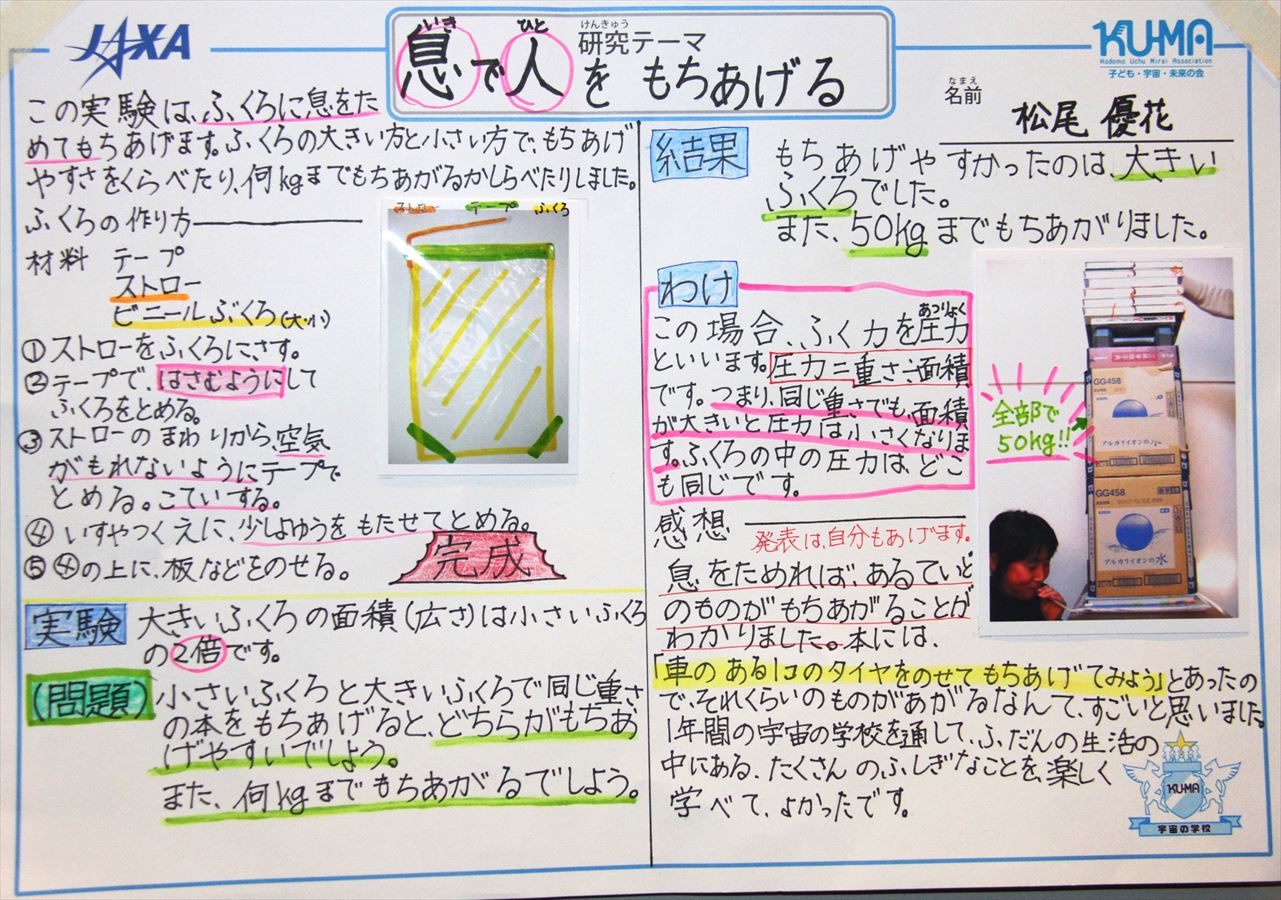 JAXA
いき ひと けんきゅう
研究テーマ
息で人をもちあげる
KU-MA
Kodomo Uchu Mirai Association
子ども・宇宙・未来の会
なまえ
名前 松尾 優花
この実験は、ふくろに息をた
めてもちあげます。ふくろの大きい方と小さい方で、もちあげ
やすさをくらべたり、何kgまでもちあがるかしらべたりしました。
ふくろの作り方
材料 テープ
ストロー
ビニールぶくろ(大・小)
①ストローをふくろにさす。
②テープで、はさむようにして
ふくろをとめる。
③ストローのまわりから、空気
がもれないようにテープで
とめる。こていする。
④いすやつくえに、少しよゆうをもたせてとめる。
⑤④の上に、板などをのせる。
完成
ストロー テープ ふくろ
実験 大きいふくろの面積(広さ)は小さいふくろ
の2倍です。
(問題) 小さいふくろと大きいふくろで同じ重さ
の本をもちあげると、どちらがもちあ
げやすいでしょう。
また、何kgまでもちあがるでしょう。
結果 もちあげやすかったのは、大きい
ふくろでした。
また、50kgまでもちあがりました。
わけ
あつりょく
この場合、ふく力を圧力
といいます。圧力=重さ÷面積
です。つまり、同じ重さでも、面積
が大きいと圧力は小さくなりま
す。ふくろの中の圧力は、どこ
も同じです。
全部で
50kg!!
GG458
アルカリイオンの水
GG458
アルカリイオンの水
感想
発表は、自分もあげます。
息をためれば、あるていど
のものがもちあがることが
わかりました。本には、
「車のある1コのタイヤをのせてもちあげてみよう」とあったの
で、それくらいのものがあがるなんて、すごいと思いました。
1年間の宇宙の学校を通して、ふだんの生活の
中にある、たくさんのふしぎなことを、楽しく
学べて、よかったです。
KU-MA
宇宙の学校